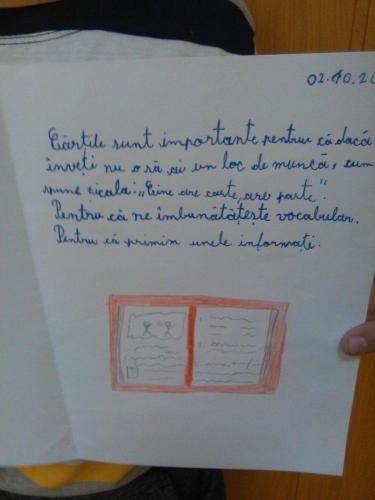 02.10.20
Cărțile sunt importante pentru că dacă
înveți nu o să ai un loc de muncă, cum
spune zicala: „Cine are carte, are parte".
Pentru că ne îmbunătățește vocabular.
Pentru că primim unele informați.